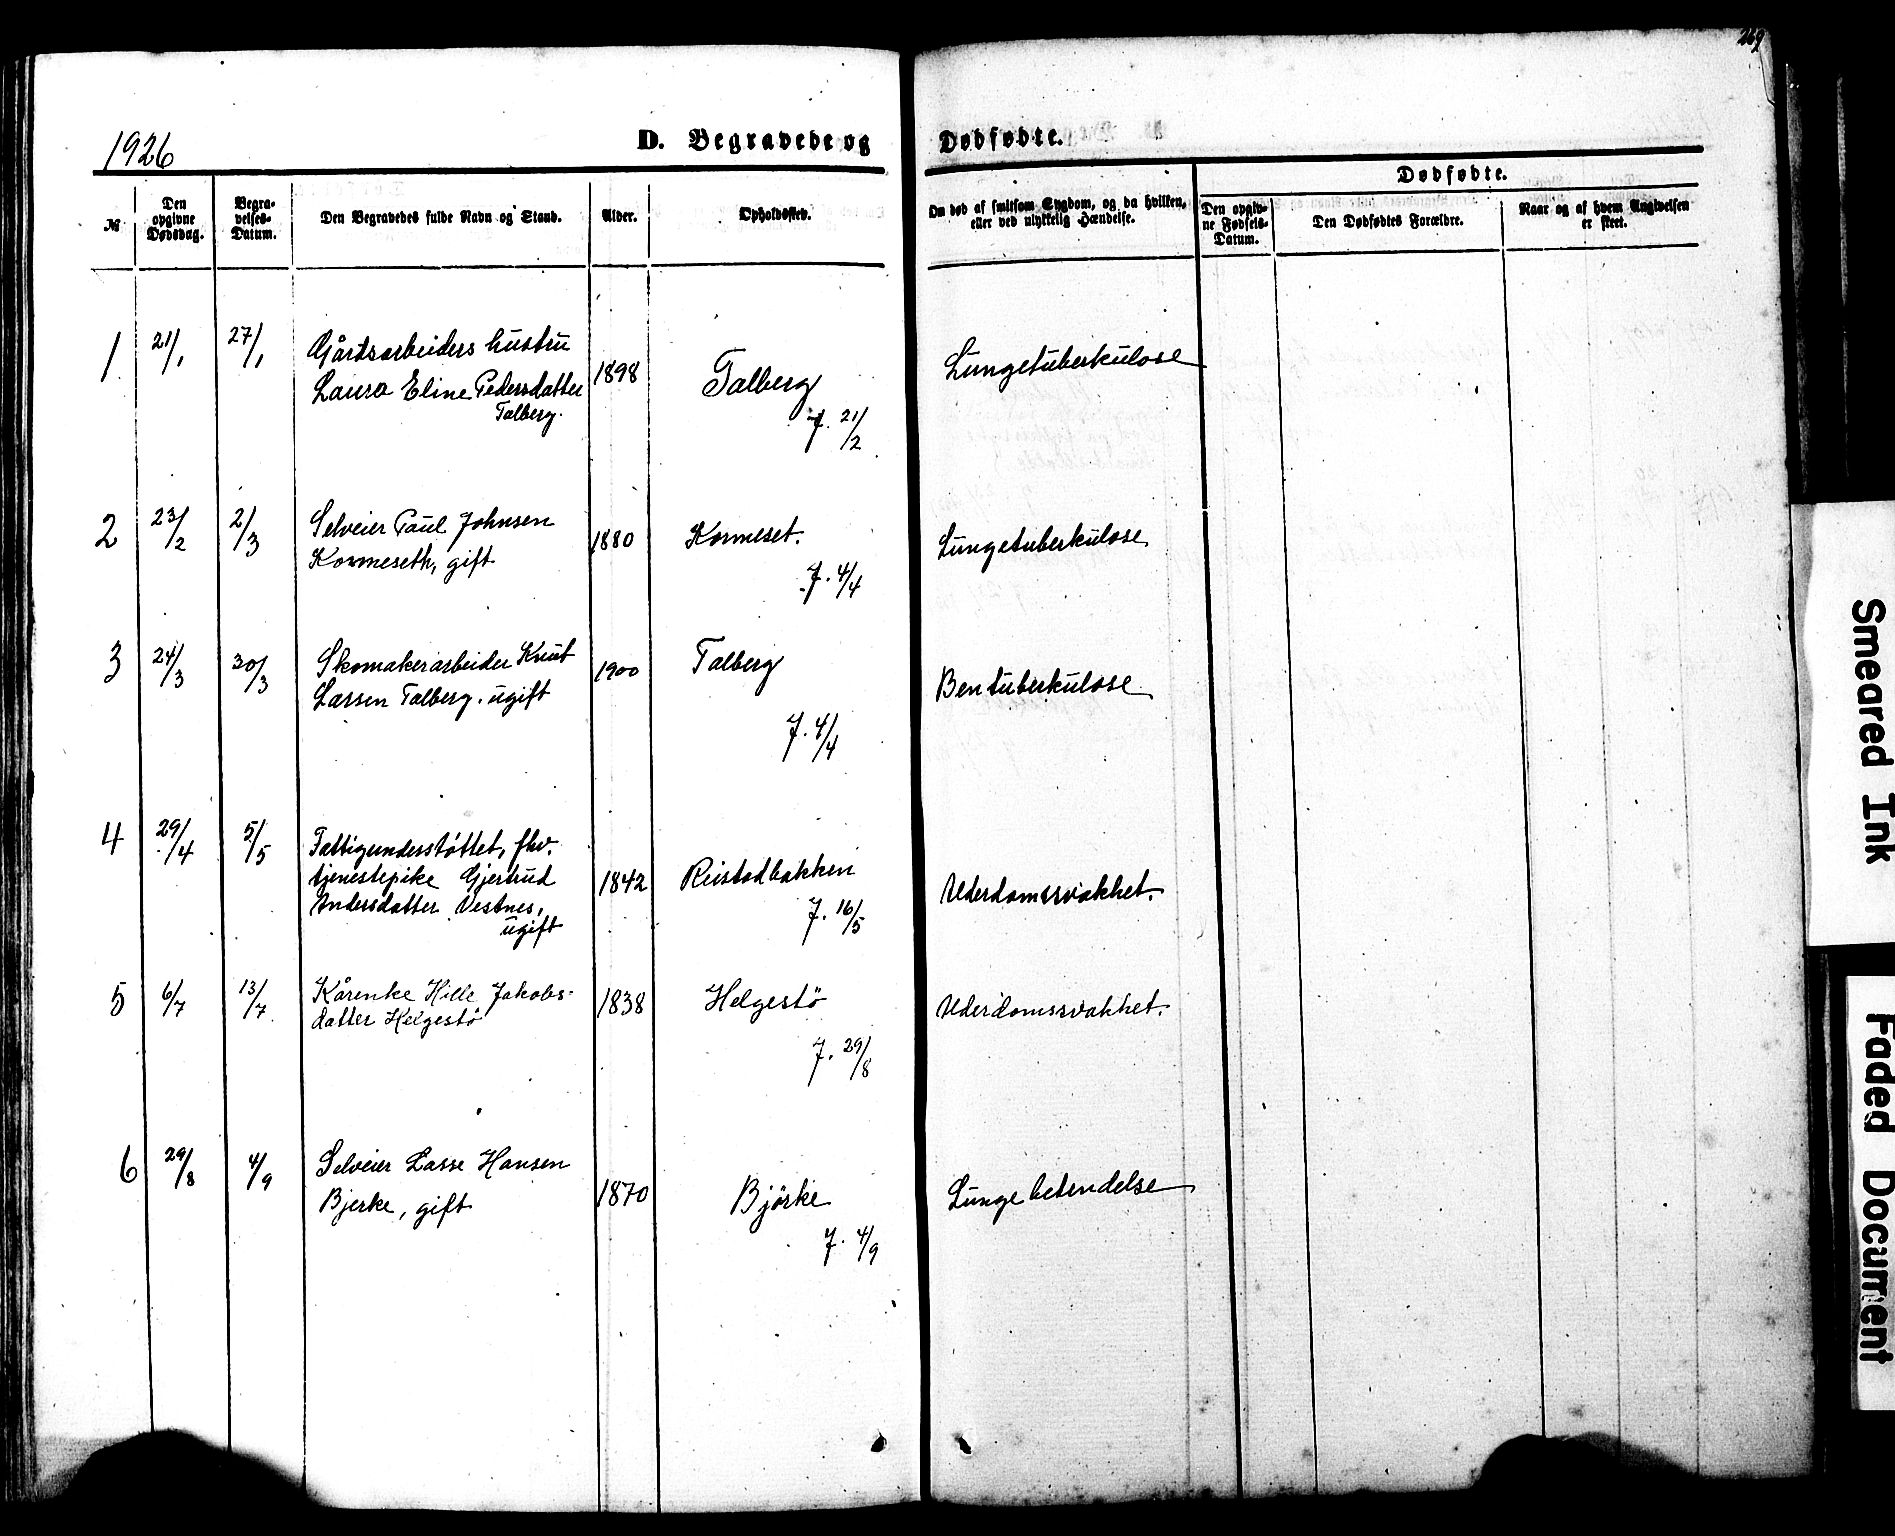 269
1926
D. Begravede og Dødfødte.
Dødfødte.
№
Den opgivne Dødsdag.
Begravelses-Datum.
Den Begravedes fulde Navn og Stand.
Alder.
Opholdssted.
Om død af smitsom Sygdom, og da hvilken, eller ved ulykkelig Hændelse.
Den opgivne Fødsels-Datum.
Den Dødfødtes Forældre.
Naar og af hvem Angivelsen er skeet.
1 21/1 27/1 Gårdsarbeiders hustru
Laura Eline Pedersdatter 1898 Talberg Lungetuberkulose
Talberg.
J. 21/2
2 23/2 2/3 Selveier Paul Johnsen
Kormeseth, gift 1880 Kormeset. Lungetuberkulose
J. 4/4
3 24/3 30/3 Skomakerarbeider Knut
Larsen Talberg. ugift 1900 Talberg Bentuberkulose
J. 4/4
4 29/4 5/5 Fattigunderstøttet, fhv.
tjenestepike Gjertrud 1842 Reistadbakken Alderdomssvakhet.
Andersdatter Vestnes,
ugift
J. 16/5
5 6/7 13/7 Kårenke Hille Jakobs-
datter Helgestö 1838 Helgestö Alderdomssvakhet.
J. 29/8
6 29/8 4/9 Selveier Lasse Hansen
Bjerke, gift 1870 Björke Lungebetendelse
J. 4/9
Smeared Ink
Faded Document